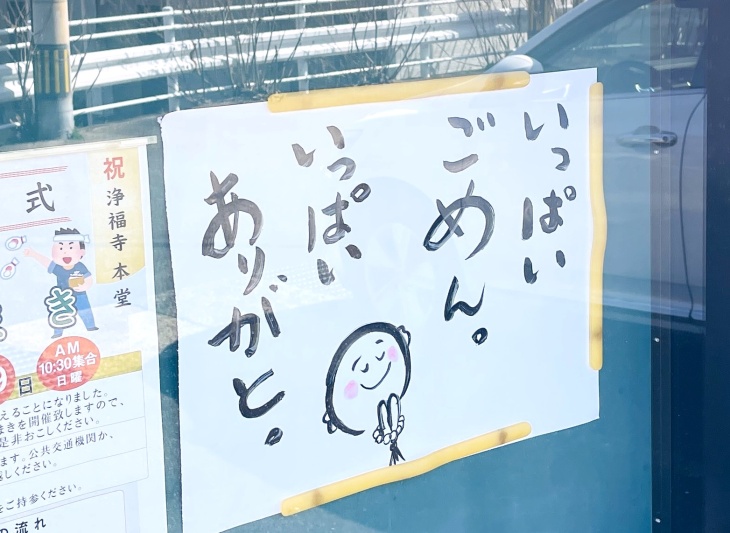 いっぱい
ごめん。
いっぱい
ありがと。
祝
浄福寺 本堂
式
き
AM
10:30集合
日曜
9日
えることになりました。
まきを開催致しますので、
是非おこしください。
ます。公共交通機関か、
しください。
をご持参ください。
の流れ